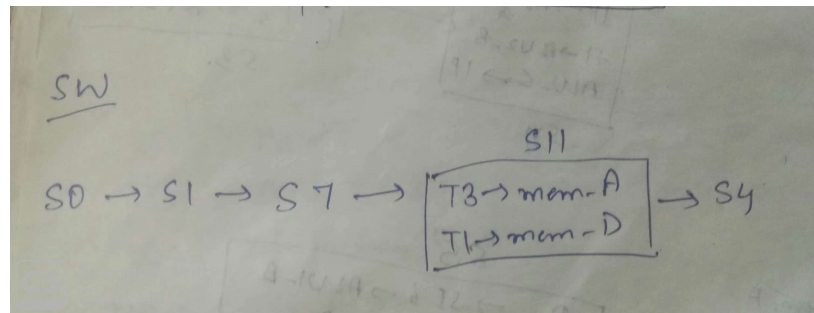 SW
S11
S0 → S1 → S7 → T3 → mem-A → S4
T1 → mem-D